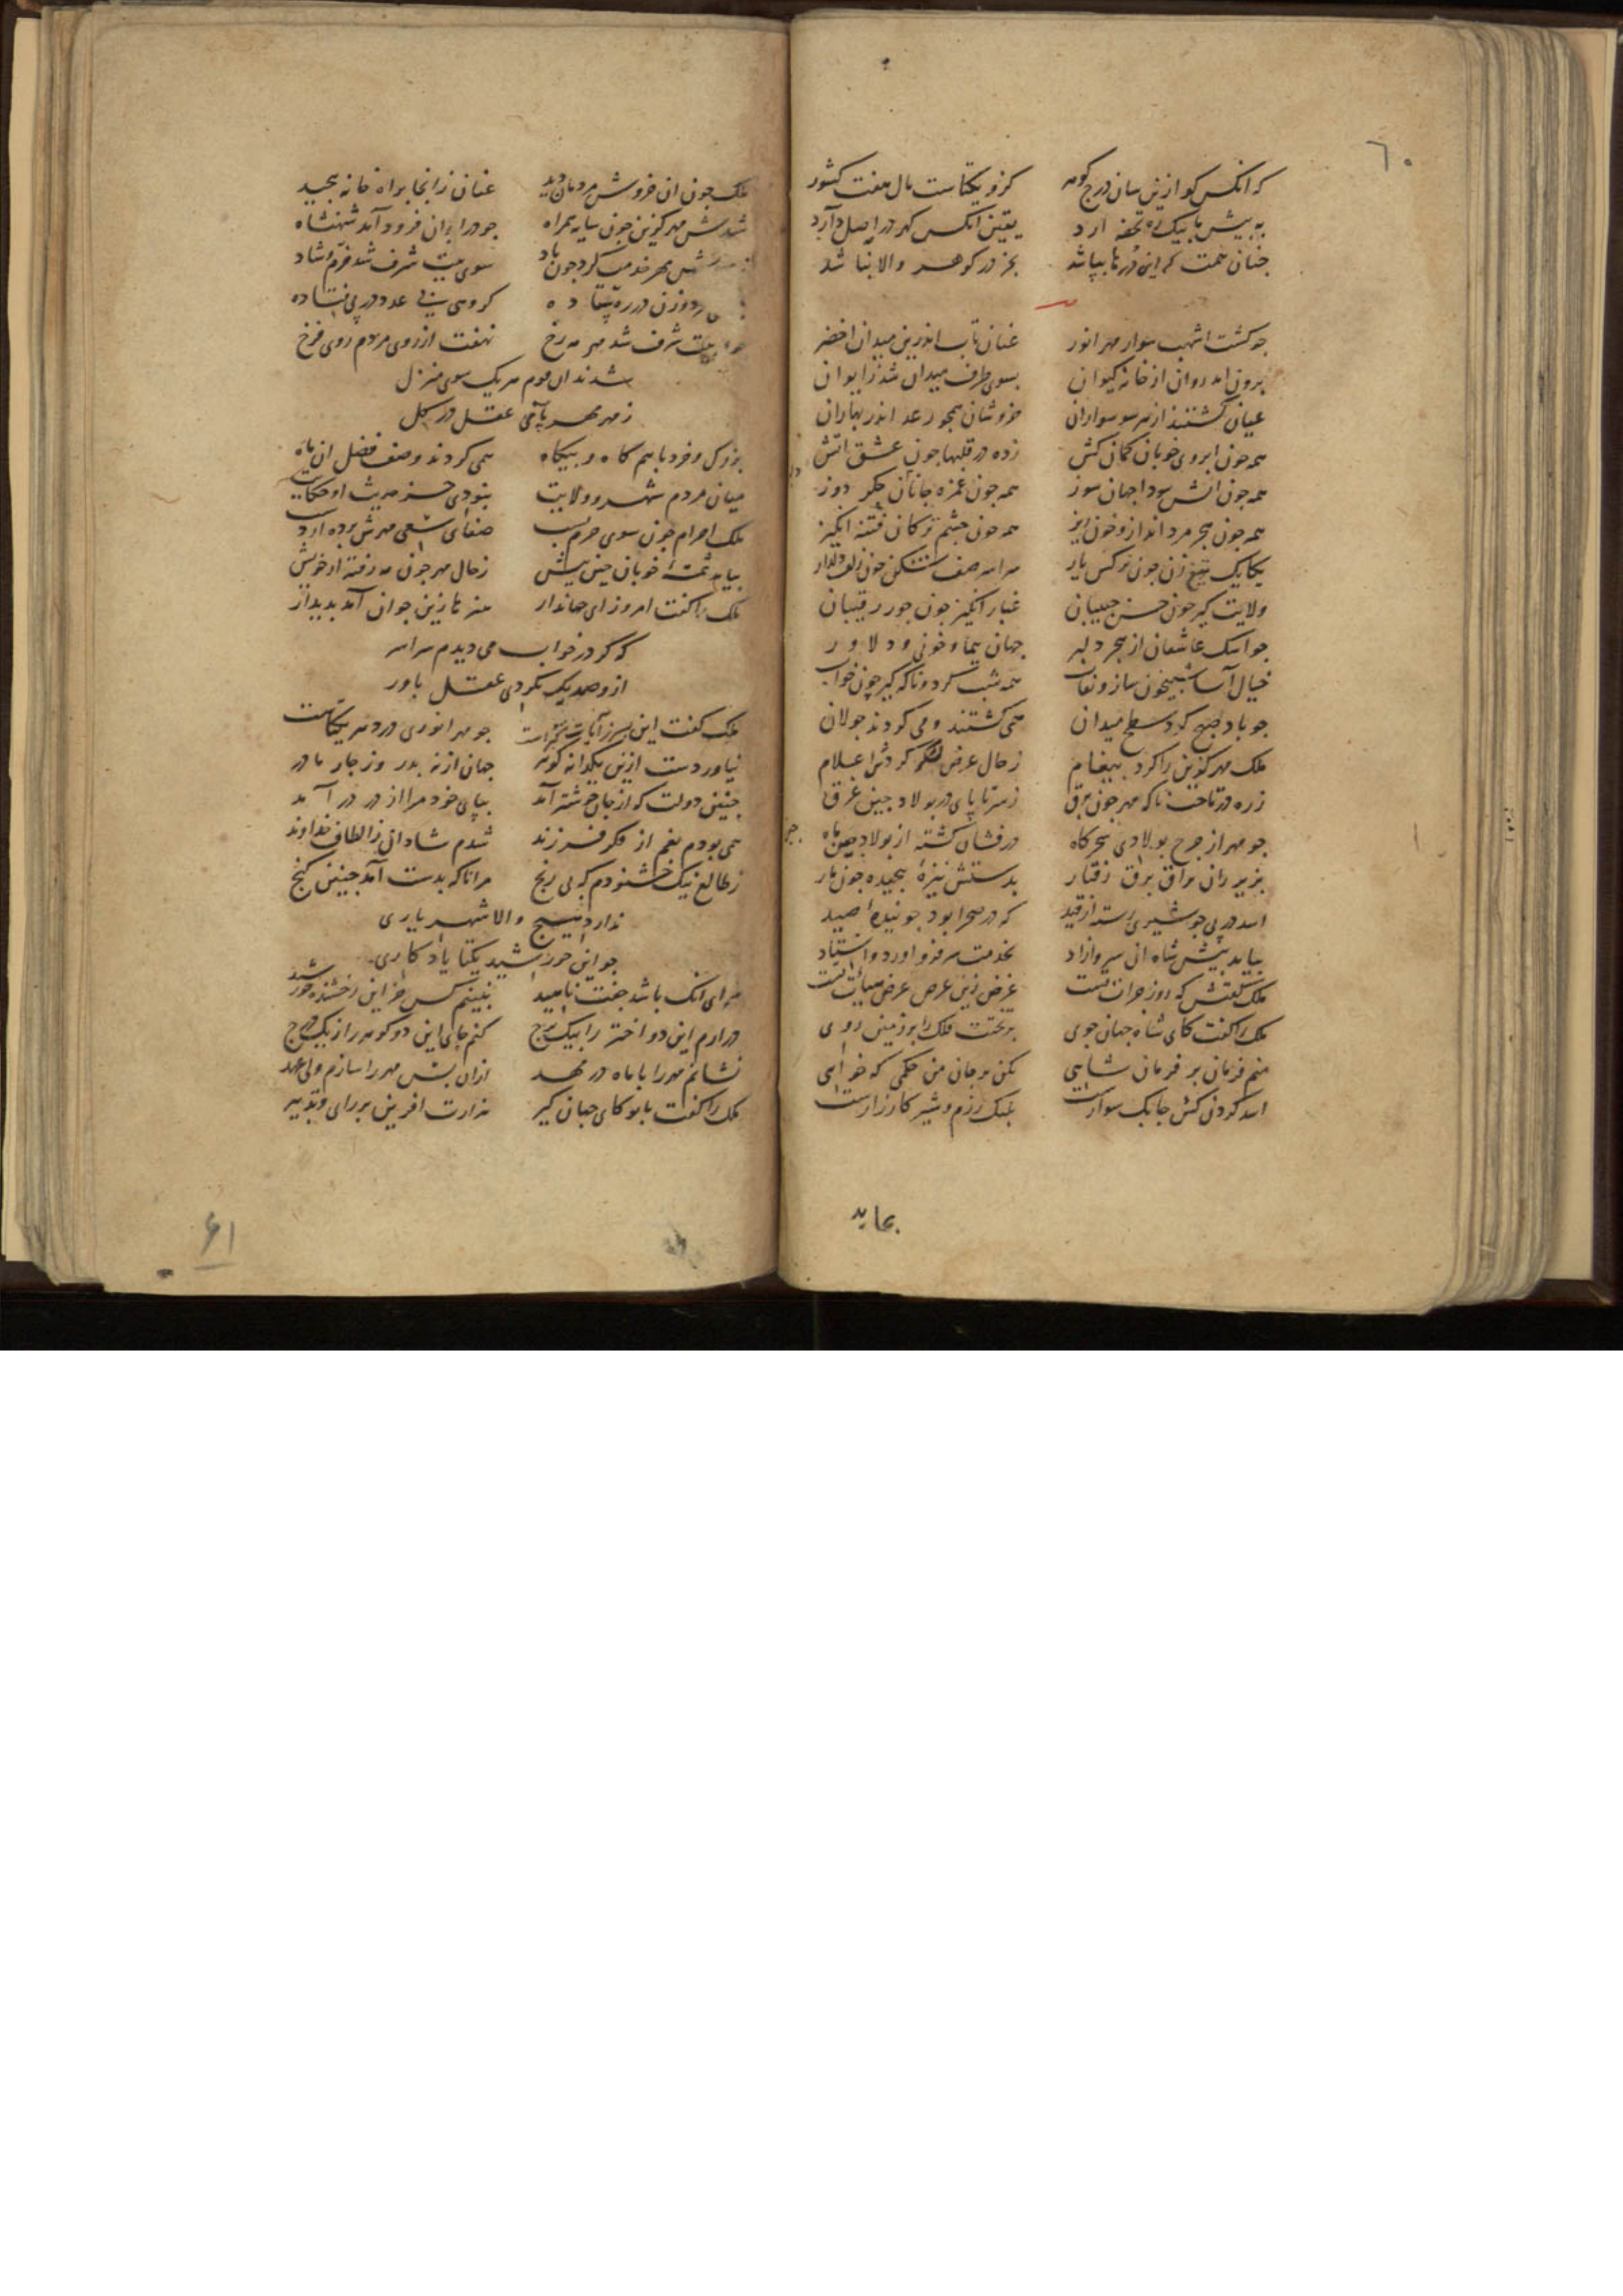 ٦٠
که انکس کو ازین سان درج کوهر کزو یکتاست مال هفت کشور
به پیش ما بیک ره تحفه ارد یقین انکس کهر در اصل دارد
چنان همت که این درها بپاشد بجز در کوهر والا نباشد
جو کشت اشهب سوار مهر انور عنان تاب اندرین میدان اخضر
برون امد روان از خانه کیوان بسوی طرف میدان شد ز ایوان
عیان کشتند از هر سو سواران خروشان همجو رعد اندر بهاران
همه جون ابروی خوبان کمان کش زده در قلبها جون عشق اتش
همه جون اتش سودا جهان سوز همه جون غمزه جانان جکر دوز
همه جون هجر مرد انداز و خون ریز همه جون جشم ترکان فتنه انکیز
یکایک تیغ زن جون نرکس یار سراسر صف شکن جون زلف دلدار
ولایت کیر جون حسن حبیبان غبار انکیز جون جور رقیبان
جو اشک عاشقان از هجر دلبر جهان پیما و خونی و دلاور
خیال آسا شبیخون ساز و نقاب همه شب کرد و ناکه کیر چون خواب
جو باد صبح کرد سطح میدان همی کشتند و می کردند جولان
ملک مهر کزین را کرد پیغام ز حال عرض لشکر کردش اعلام
زره در تاخت ناکه مهر جون برق ز سر تا پای در پولاد چینی غرق
جو مهر از چرخ پولادی سحرکاه درفشان کشته از پولاد چین ماه
بزیر ران براق برق رفتار بدستش نیزه پیچیده جون مار
اسد در پی جو شیری رسته از قید که در صحرا بود جوینده صید
بیامد پیش شاه ان سرو ازاد بخدمت سر فرو اورد و استاد
ملک کفتش که روز جرات تست غرض زین عرض عرض هیأت تست
ملک را کفت کای شاه جهان جوی بتختت فلک را بر زمین روی
منم فرمان بر فرمان شاهی بکن بر جان من حکمی که خواهی
اسد کردن کش چابک سوارست پلنک رزم و شیر کارزارست
بماند
ملک جون ان خروش مردمان دید عنان زانجا براه خانه پیچید
شدش مهر کزین جون سایه همراه جو در ایوان فرود آمد شهنشاه
بهر خدمت کرد جون باد سوی بیت شرف شد خرم و شاد
مرد و زن در ره ستاده کروهی بی عدد در پی فتاده
بیت شرف شد مهر مه رخ نهفت از روی مردم روی فرخ
شدند ان قوم هر یک سوی منزل
ز مهر مهر پای عقل در کل
بزرک و خرد با هم کاه و بیکاه همی کردند وصف فضل ان ماه
میان مردم شهر و ولایت نبودی جز حدیث او حکایت
ملک احرام جون سوی حرم بست صفای سعی مهرش برده از دست
بیامد شمسه خوبان چین پیش ز حال مهر جون مه رفته از خویش
ملک را کفت امروز ای جهاندار هنرها زین جوان آمد پدیدار
که کر در خواب می دیدم سراسر
ازو صد یک نکردی عقل باور
ملک کفت این پسر آیات کبراست جو مهر انوری در دهر یکتاست
نیاوردست ازین یکدانه کوهر جهان از نه پدر وز چار مادر
چنین دولت که از جان خوشتر آمد بپای خود مرا از در در آمد
همی بودم بغم از فکر فرزند شدم شادان ز الطاف خداوند
ز طالع نیک خشنودم که بی رنج مرا ناکه بدست آمد چنین کنج
ندارد هیچ والا شهریاری
جو این خورشید یکتا یادکاری
برای انک باشد جفت ناهید نبینم کس جز این رخشنده خورشید
در ارم این دو اختر را بیک برج کنم جای این دو کوهر را ز یک درج
نشانم مهر را با ماه در مهد ازان پس مهر را سازم ولی عهد
ملک را کفت بانو کای جهان کیر هزارت افرین بر رای و تدبیر
۶۱